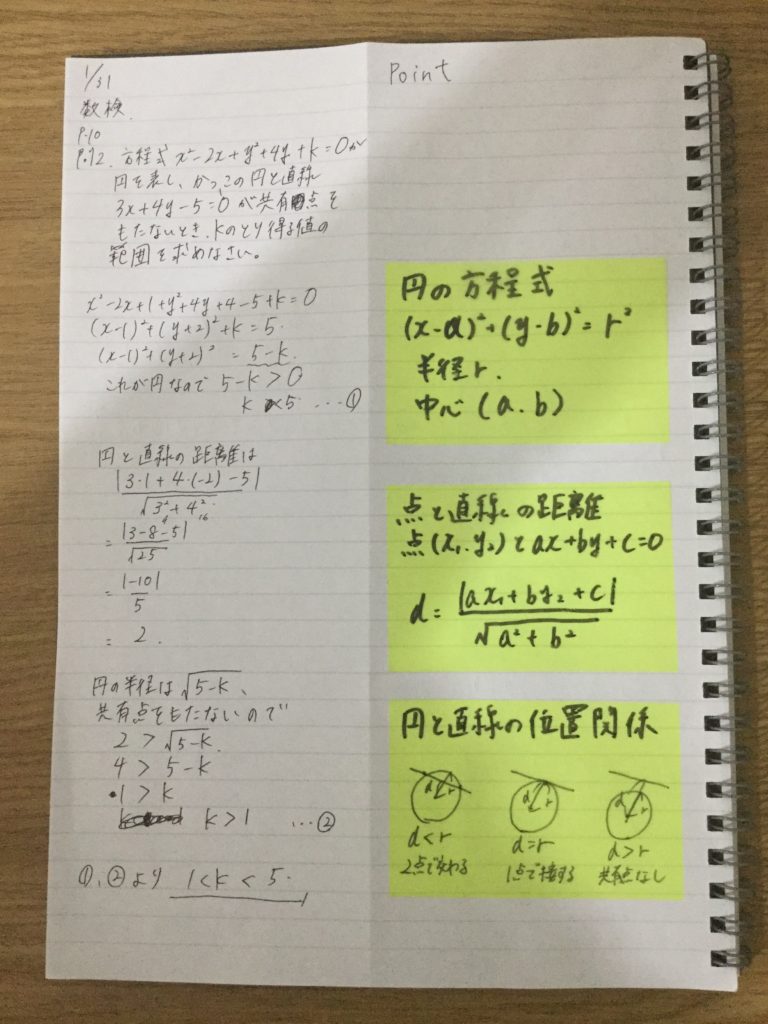 1/31
数検
P.10
P.12. 方程式 x²-2x+y²+4y+k=0が
円を表し、かつ、この円と直線
3x+4y-5=0 が共有点を
もたないとき、kのとり得る値の
範囲を求めなさい。
x²-2x+1+y²+4y+4-5+k=0
(x-1)²+(y+2)²+k=5.
(x-1)²+(y+2)² = 5-k.
これが円なので 5-k>0
k<5 …①
円と直線の距離は
|3・1+4・(-2)-5| / √3²+4²
9 16
= |3-8-5| / √25
= |-10| / 5
= 2.
円の半径は √5-k、
共有点をもたないので
2 > √5-k.
4 > 5-k
1 > k
k>1 …②
①、②より 1<k<5.
Point
円の方程式
(x-a)²+(y-b)²=r²
半径r.
中心(a.b)
点と直線の距離
点(x₁.y₂)とax+by+c=0
d= |ax₁+by₂+c| / √a²+b²
円と直線の位置関係
d r d r d r
d<r d=r d>r
2点で交わる 1点で接する 共有点なし